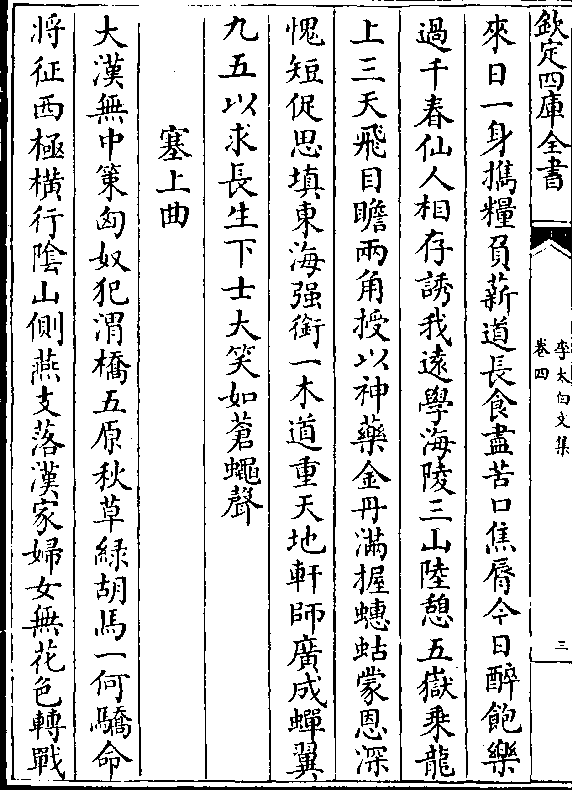 欽定四庫全書
李太白文集
卷四
三
來日一身攜糧負薪道長食盡苦口焦脣今日醉飽樂
過千春仙人相存誘我遠學海陵三山陸憩五嶽乘龍
上三天飛目瞻兩角授以神藥金丹滿握蟪蛄蒙恩深
愧短促思填東海强銜一木道重天地軒師廣成蟬翼
九五以求長生下士大笑如蒼蠅聲
塞上曲
大漢無中策匈奴犯渭橋五原秋草緑胡馬一何驕命
將征西極橫行陰山側燕支落漢家婦女無花色轉戰